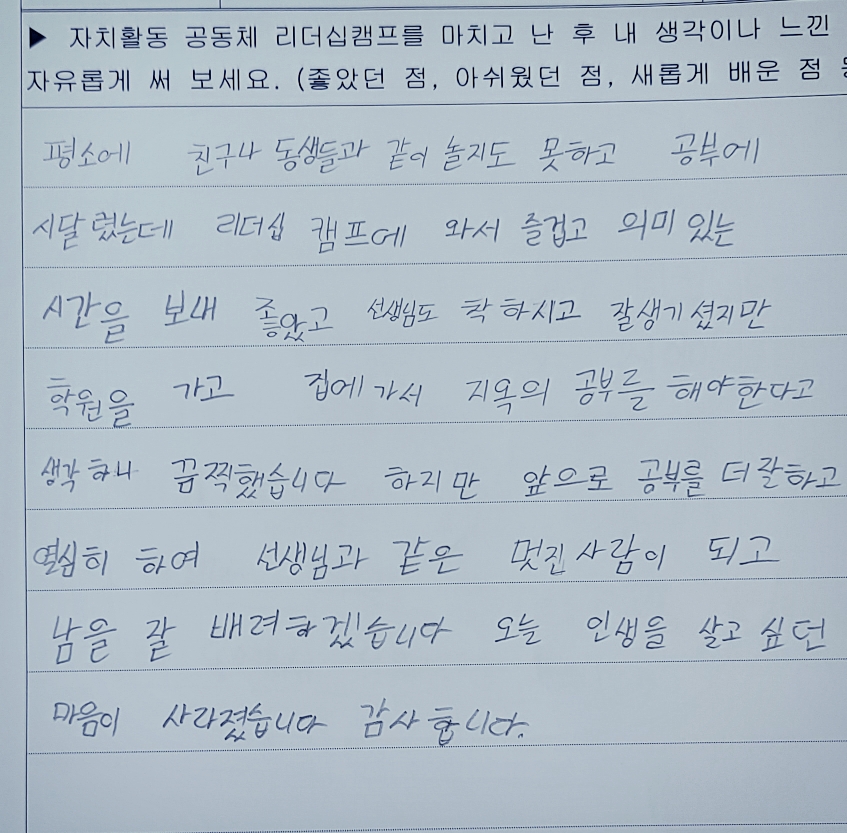 ▶ 자치활동 공동체 리더십캠프를 마치고 난 후 내 생각이나 느낀
자유롭게 써 보세요. (좋았던 점, 아쉬웠던 점, 새롭게 배운 점
평소에 친구나 동생들과 같이 놀지도 못하고 공부에
시달렸는데 리더십 캠프에 와서 즐겁고 의미 있는
시간을 보내 좋았고 선생님도 착하시고 잘생기셨지만
학원을 가고 집에 가서 지옥의 공부를 해야한다고
생각하니 끔찍했습니다 하지만 앞으로 공부를 더 잘하고
열심히 하여 선생님과 같은 멋진 사람이 되고
남을 잘 배려하겠습니다 오늘 인생을 살고 싶던
마음이 사라졌습니다 감사합니다.